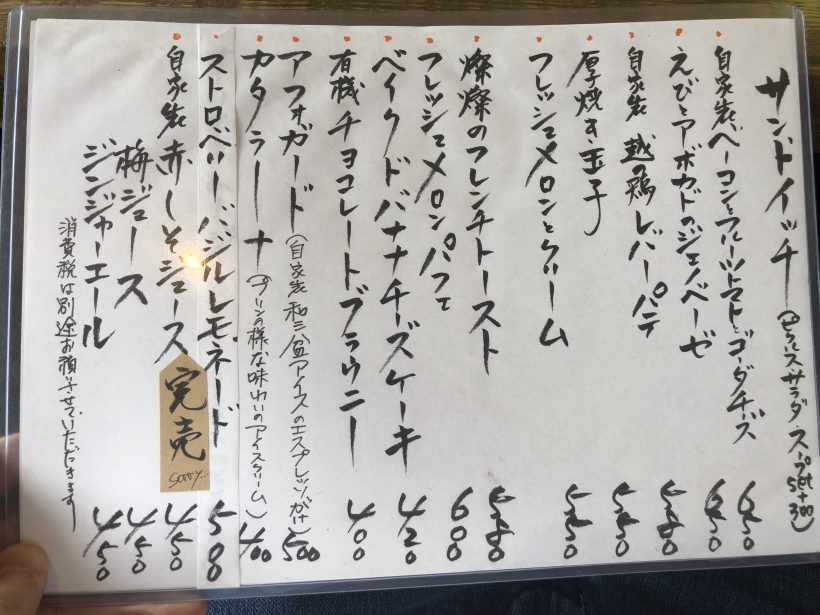 サンドイッチ(ピクルス・サラダ・スープ set +300)
自家製ベーコンとフルーツトマトとゴーダチーズ 650
えびとアボカドのジェノベーゼ 650
自家製 越の鶏レバーパテ
厚焼き玉子
フレッシュメロンとクリーム
燦燦のフレンチトースト
フレッシュメロンパフェ 600
ベイクドバナナチーズケーキ 420
有機チョコレートブラウニー 400
アフォガード(自家製和三盆アイスのエスプレッソがけ) 500
カタラーナ(プリンの様な味わいのアイスクリーム) 400
ストロベリーバジルレモネード 500
自家製赤しそジュース 完売 sorry.. 450
梅ジュース 450
ジンジャーエール 450
消費税は別途お預りさせていただきます